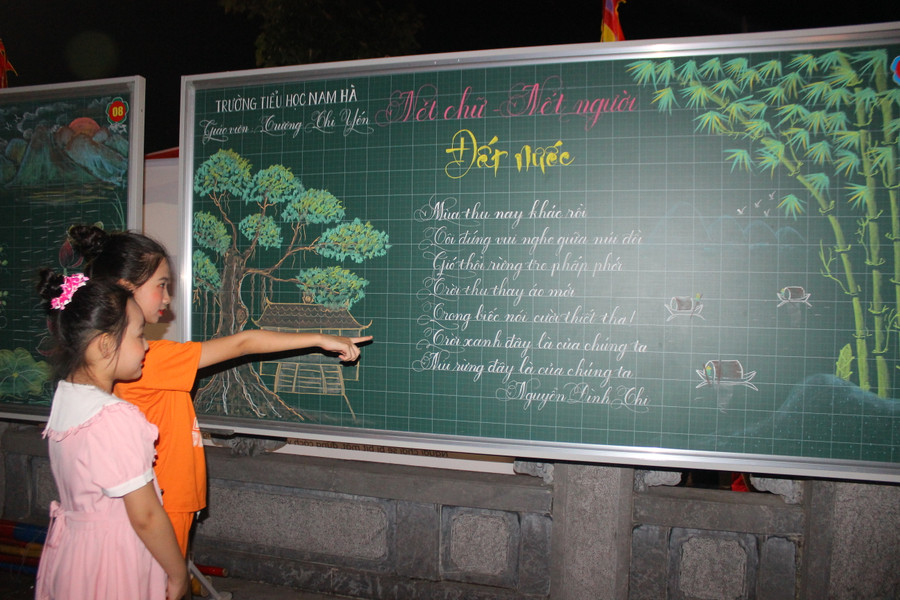 08
TRƯỜNG TIỂU HỌC NAM HÀ
Giáo viên: Trương Thị Yến
Nét chữ - Nết người
Đất nước
Mùa thu nay khác rồi
Tôi đứng vui nghe giữa núi đồi
Gió thổi rừng tre phấp phới
Trời thu thay áo mới
Trong biếc nói cười thiết tha!
Trời xanh đây là của chúng ta
Núi rừng đây là của chúng ta
Nguyễn Đình Thi